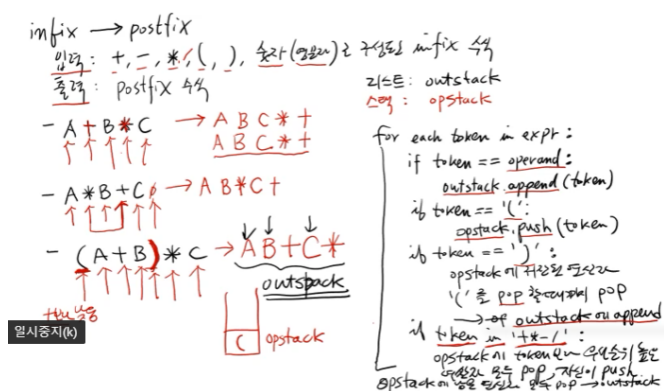 infix → postfix
입력 : +, -, *, /, (, ), 숫자(영문자)로 구성된 infix 수식
출력 : postfix 수식
리스트 : outstack
스택 : opstack
- A + B * C → A B C * +
A B C * +
- A * B + C → A B * C +
- (A + B) * C → A B + C *
outstack
( opstack
일시중지(k)
for each token in expr :
if token == operand :
outstack.append(token)
if token == '(' :
opstack.push(token)
if token == ')' :
opstack에 저장된 연산자
'(' 를 pop 할때까지 pop
→ outstack append
if token in '+*-/' :
opstack에 token 보다 우선순위 높은
연산자 모두 pop, 자신이 push
opstack에 남은 연산자 모두 pop → outstack